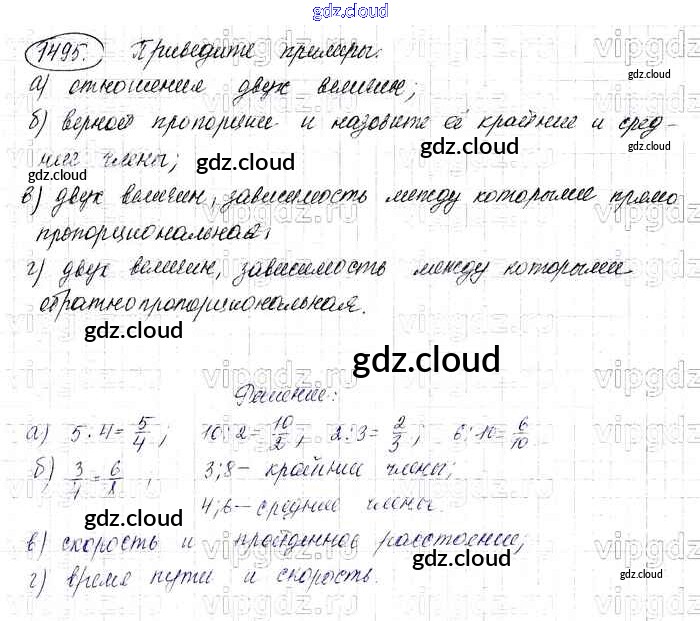 gdz.cloud
1495. Приведите примеры:
а) отношения двух величин;
gdz.cloud
б) верной пропорции и назовите её крайние и сред-
ние члены;
gdz.cloud gdz.cloud gdz.cloud
в) двух величин, зависимость между которыми прямо
пропорциональная;
г) двух величин, зависимость между которыми
обратно пропорциональная.
gdz.cloud gdz.cloud
Решение:
а) 5 · 4 = 5/4; 10 : 2 = 10/2; 2 : 3 = 2/3; 6 : 10 = 6/10
б) 3/4 = 6/8, 3; 8 – крайние члены;
4; 6 – средние члены.
gdz.cloud gdz.cloud
в) скорость и пройденное расстояние;
gdz.cloud
г) время пути и скорость.
gdz.cloud